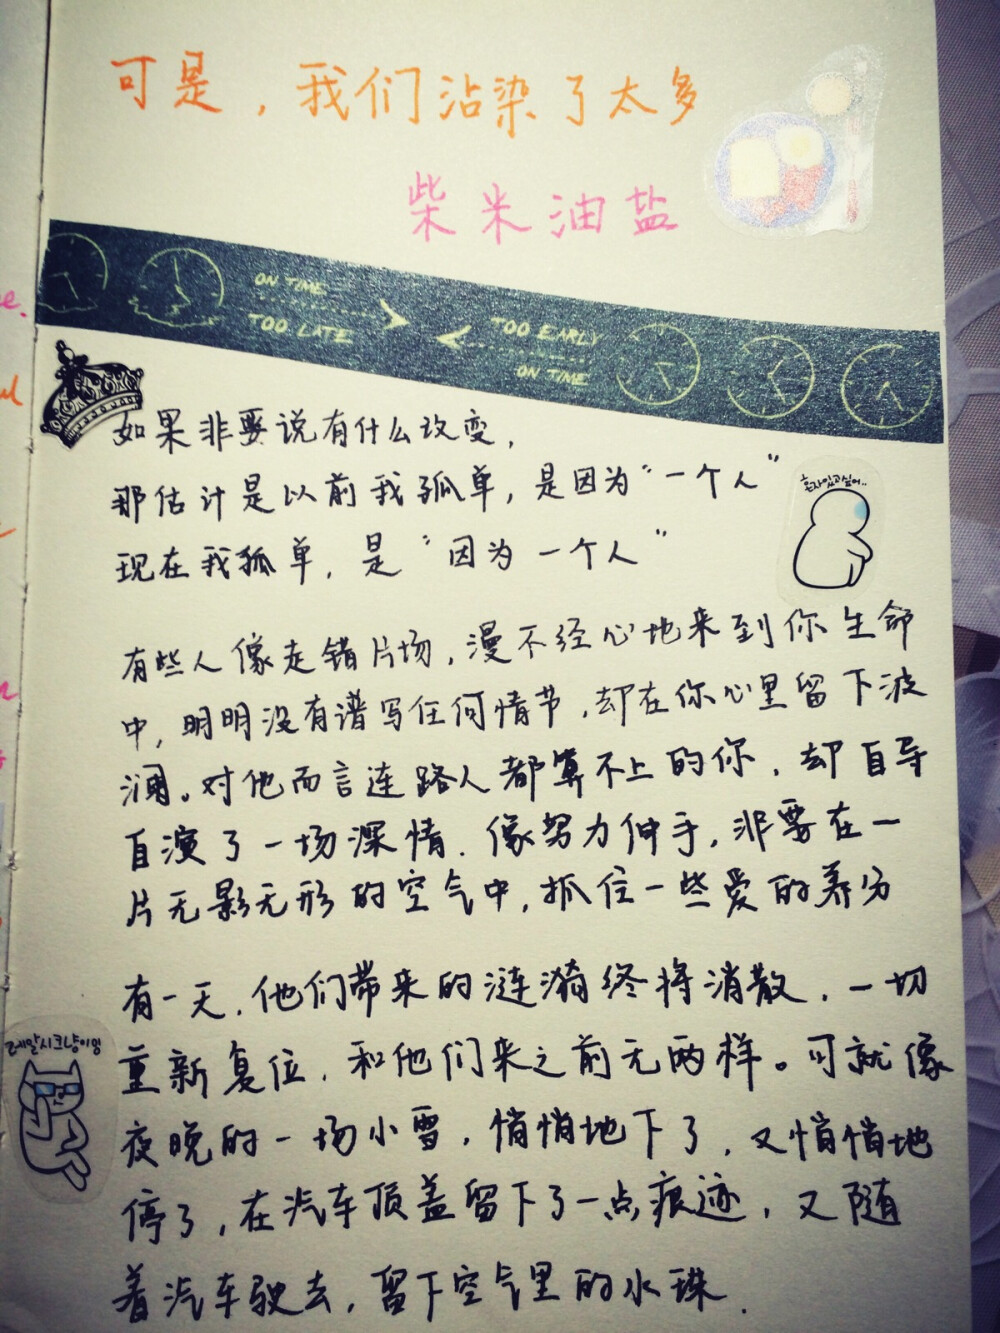 可是，我们沾染了太多
柴米油盐
ON TIME
TOO LATE
TOO EARLY
ON TIME
如果非要说有什么改变，
那估计是以前我孤单，是因为“一个人”
혼자있고싶어..
现在我孤单，是“因为一个人”
有些人像走错片场，漫不经心地来到你生命
中，明明没有谱写任何情节，却在你心里留下波
澜。对他而言连路人都算不上的你，却自导
自演了一场深情．像努力伸手，非要在一
片无影无形的空气中，抓住一些爱的养分
有一天，他们带来的涟漪终将消散．一切
重新复位．和他们来之前无两样。可就像
夜晚的一场小雪，悄悄地下了，又悄悄地
停了，在汽车顶盖留下了一点痕迹，又随
着汽车驶去，留下空气里的水珠．